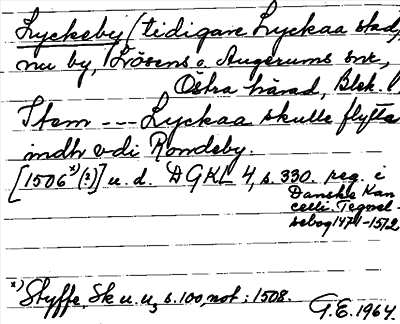 Lyckeby (tidigare Lyckaa stad,
nu by, Lösens o. Augerums snr,
Östra härad, Blek. l.
Item --- Lyckaa skulle flytta
indh vdi Rondeby.
[1506*)(?)] u. d. DGKL 4, s. 330. reg. i
Danske Kan
celli. Tegnel-
sebog 1471-1512
*) Styffe, Sk u. u, s. 100, not: 1508.
G.E. 1964.